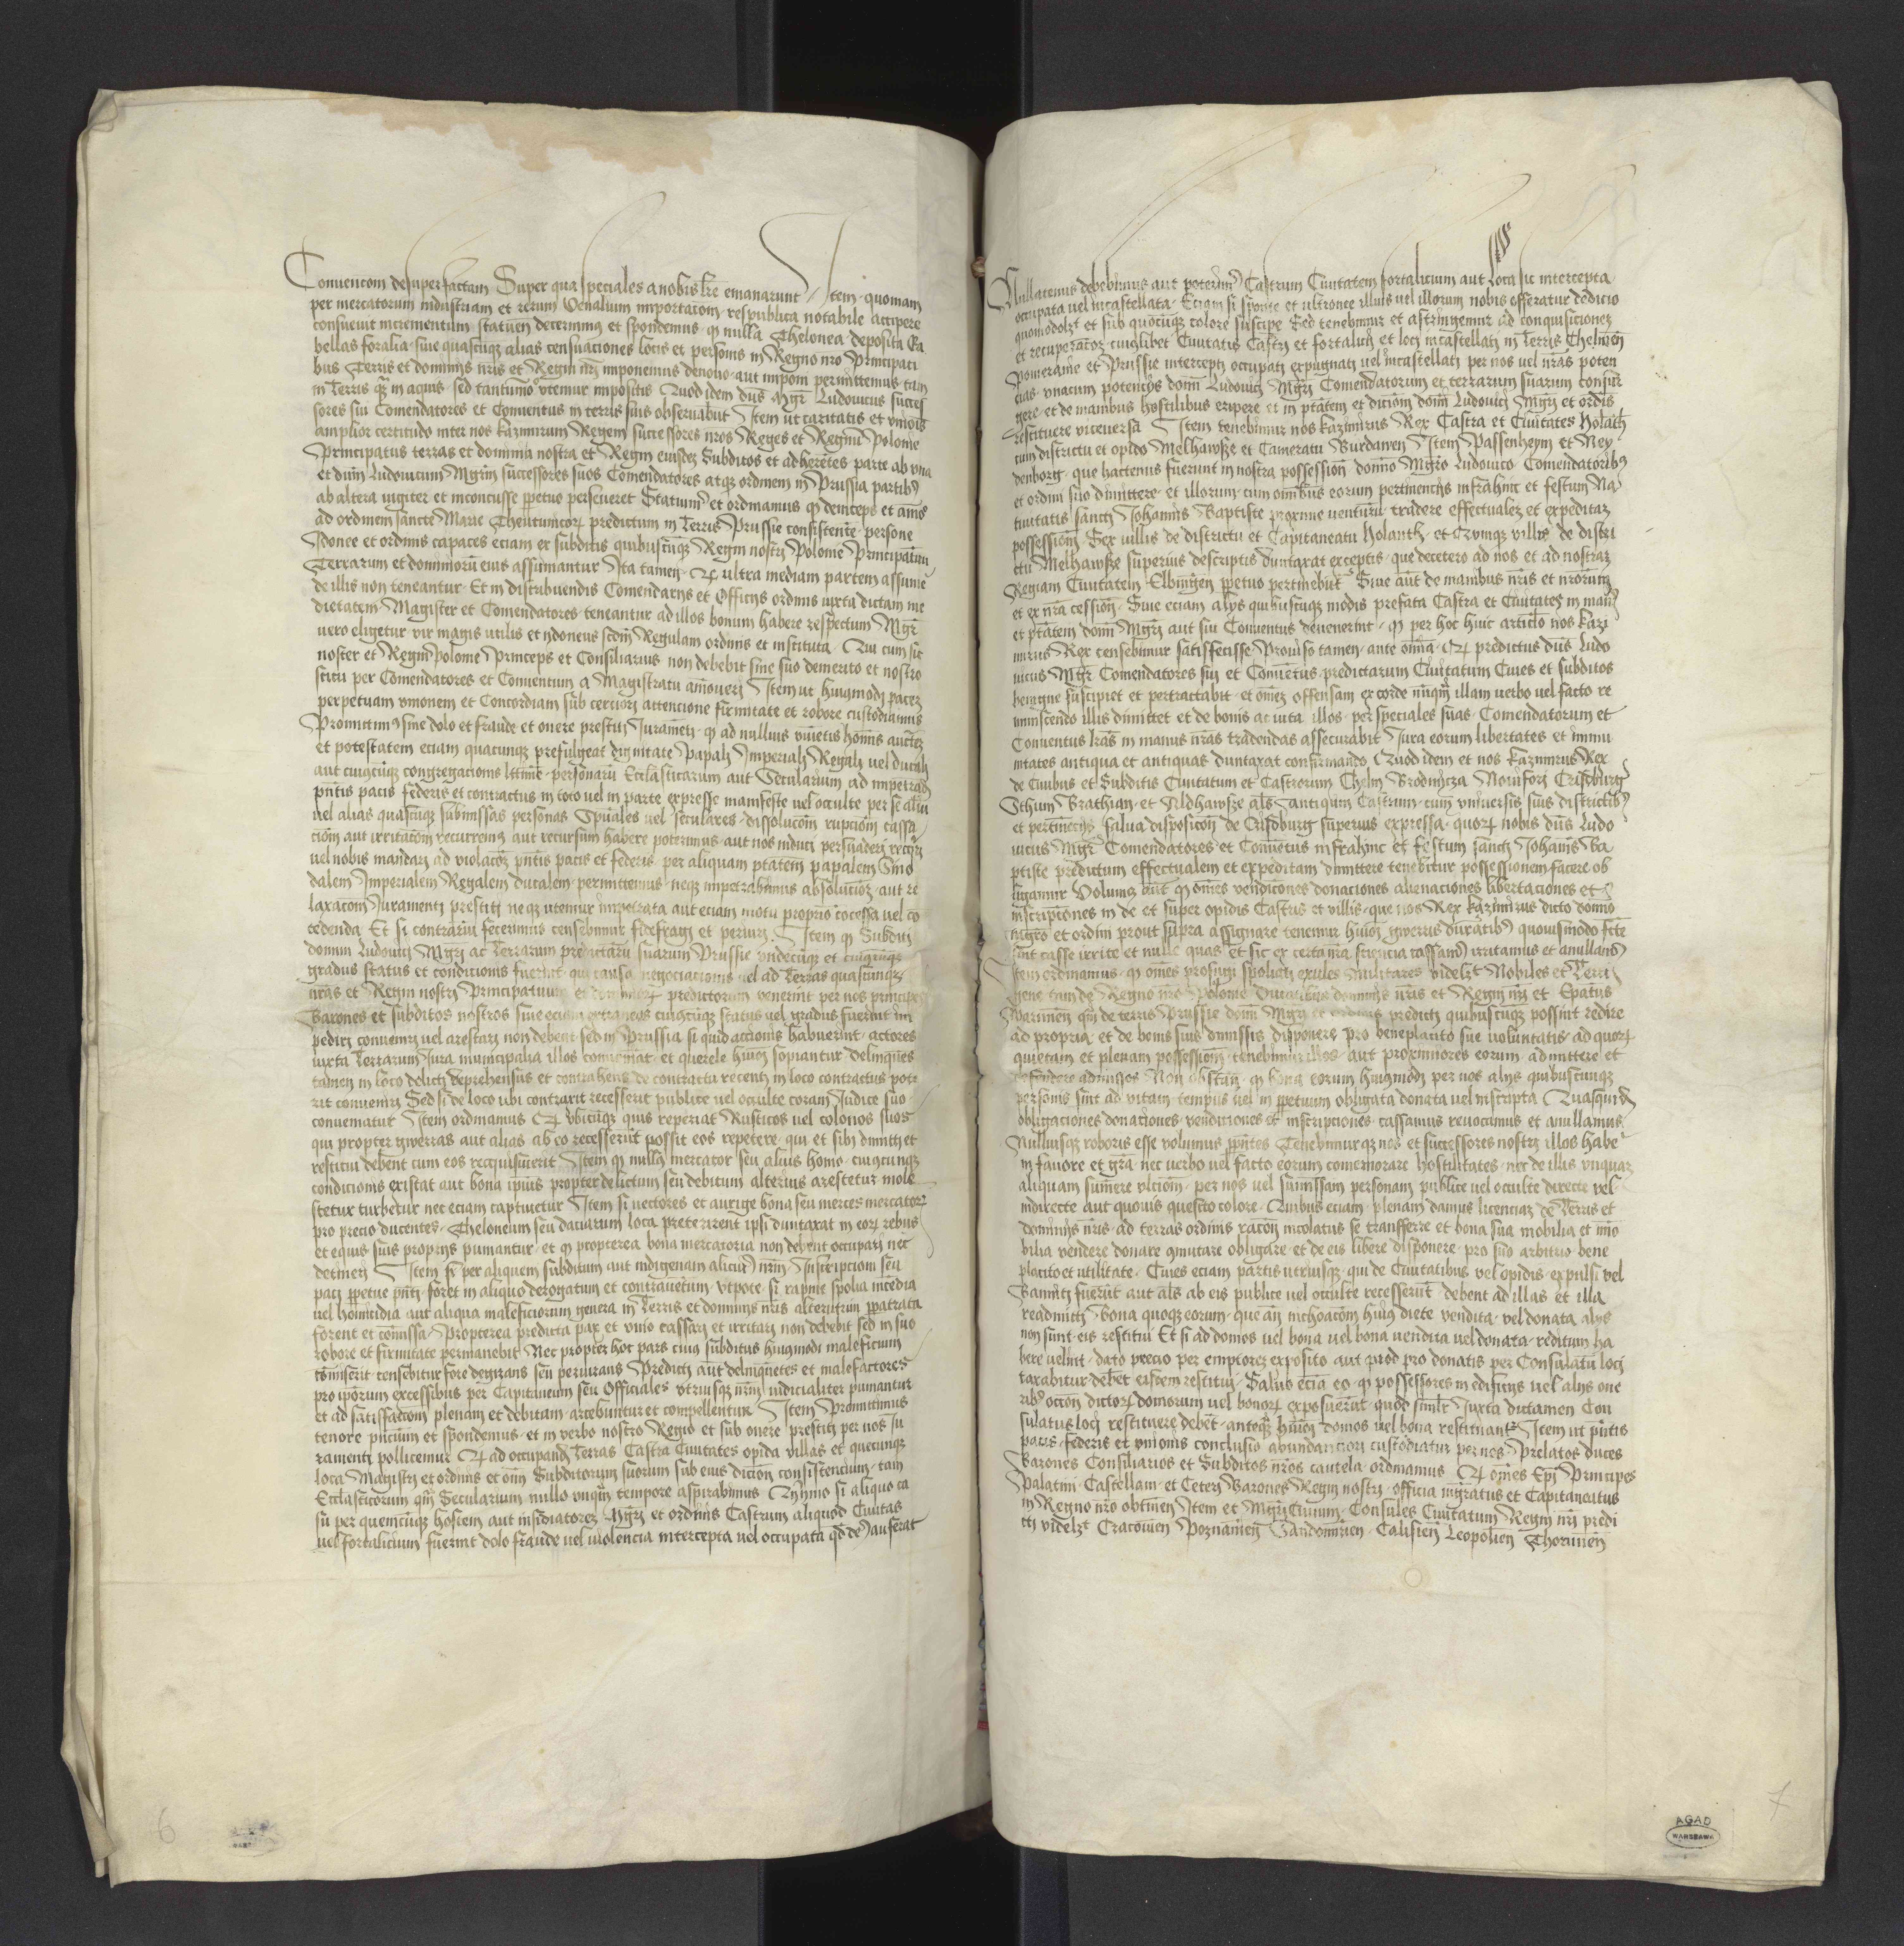 Convencom desuper factam Super qua speciales a nobis lr̄e emanarunt Item quoniam
per mercatorum industriam et rerum Venalium importacoꝫ respublica notabile accipere
consuevit incrementum statuen decernimus et spondemus ꝙ nulla Thelonea deposita Ga
bellas foralia siue quascūqꝫ alias censuaciones locis et personis in Regno nro Principati
bus Terris et dominijs nris et Regni nrj imponemus denouo aut imponi permittemus tam
in Terris qꝫ in aquis sed tantūmo vtemur impositis Quod idem dn̄s Mgr̄ Ludouicus succes
sores sui Comendatores et Conuentus in terris suis obseruabūt Item ut caritatis et vnionis
amplior certitudo inter nos Kazimirum Regem successores nr̄os Reges et Regnū Polonie
Principatus terras et dominia nostra et Regni eiusdeꝫ Subditos et adherētes parte ab vna
et dnm̄ Ludouicum Mgrm̄ successores suos Comendatores atqꝫ ordinem in Prussia partibꝰ
ab altera iugiter et inconcusse ꝑpetuo perseueret Statuimꝰ et ordinamus ꝙ deinceps et am̄o
ad ordinem sancte Marie Theutunicorꝫ predictum in Terris Prussie consistente persone
Idonee et ordinis capaces eciam ex subditis quibuscūqꝫ Regni nostrj Polonie Principatuū
Terrarum et dominiorū eius assumantur Ita tamen Qꝫ ultra mediam partem assume
de illis non teneantur Et in distribuendis Comendarijs et Officijs ordinis iuxta dictam me
dietatem Magister et Comendatores teneantur ad illos bonum habere respectum Mgr̄
uero eligetur vir magis utilis et ydoneus scdm̄ Regulam ordinis et instituta Qui cum sit
noster et Regni Polonie Princeps et Consiliarius non debebit sine suo demerito et nostro
scitu per Comendatores et Conuentum a Magistratu amoueri Item ut huiꝰmodj paceꝫ
perpetuam vnionem et Concordiam sub cercion attencione firmitate et robore custodiamus
Promittimꝰ sine dolo et fraude et onere prestitj Juramētj ꝙ ad nullius viuētis hois auctēꝫ
et potestatem eciam quacunqꝫ prefulgeat dignitate Papalj Imperialj Regalj vel ducalj
aut cuiuscūqꝫ congregacionis lttime personarū Ecclasticarum aut Secularium ad impetrād
pn̄tis pacis federis et contractus in toto uel in parte expresse manifeste uel occulte per se aliū
uel alias quascūqꝫ submissas personas Spūales uel seculares dissolucom rupciom cassa
ciom aut irritatom recurremꝰ aut recursum habere poterimus aut nos induci persuaderj recipj
uel nobis mandarj ad violacoꝫ pn̄tis pacis et federis per aliquam ptātem papalem Sino
dalem Imperialem Regalem ducalem permittemus neqꝫ impetrabimus absolucōꝫ aut re
laxacom Juramentj prestitj neqꝫ utemur impetrata aut eciam motu proprio cōcessa uel cō
cedenda Et si contrariū fecerimus censebimur fidefragj et periurj Item ꝙ Subditj
domini Ludouicj Mgrj ac Terrarum predictarū suarum Prussie vndecūqꝫ et cuiuscūqꝫ
gradus status et condicionis fuerint qui causa negociacionis uel ad Terras quascunqꝫ
nr̄as et Regni nostrj Principatuum et dominiorꝫ predictorum venerint per nos principes
Barones et subditos nostros siue eciam extraneos cuiuscūqꝫ status uel gradus fuerint im
pedirj conuenirj uel arestarj non debent sed in Prussia si quid accionis habuerint actores
iuxta Terrarum Iura municipalia illos conueniāt et querele huiꝰmodi sopiantur delinquēs
tamen in loco delictj deprehensus et contrahens de contractu recentj in loco contractus pote
rit conuenirj Sed si de loco ubi contraxit recesserit publice uel occulte coram Iudice suo
conueniatur Item ordinamus Qꝫ vbicūqꝫ quis reperiat Rusticos uel colonos suos
qui propter gwerras aut alias ab eo recesserūt possit eos repetere qui et sibj dimittj et
restitui debent cum eos requisiuerit Item ꝙ nullꝰ mercator seu alius homo cuiuscunqꝫ
condicionis existat aut bona ipius propter delictum seu debitum alterius arestetur mole
stetur turbetur nec eciam captiuetur Item si uectores et aurige bona seu merces mercatorꝫ
pro precio ducentes Theloneum seu daciarum loca preterirent ipsi duntaxat in eorꝫ rebus
et equis suis proprijs puniantur et ꝙ propterea bona mercatoria non debent occuparj nec
detinerj Item si per aliquem subditum aut indigenam alicuiꝰ nrm̄ Inscripcioni seu
pacj ꝑpetue pn̄tj foret in aliquo derogatum et contrauētum vtpote si rapine spolia incēdia
uel homicidia aut aliqua maleficiorum genera in Terris et dominijs nr̄is alterutrum ꝑpatrata
forent et com̄issa Propterea predicta pax et vnio cassarj et irritarj non debebit sed in suo
robore et firmitate permanebit Nec propter hoc pars cuiꝰ subditus huiꝰmodi maleficium
com̄iserit censebitur fore degirans seu periurans Predictj aut̄ delinquētes et malefactores
pro ipōrum excessibus per Capitaneum seu Officiales vtriusqꝫ nrm̄ iudicialiter puniantur
et ad satisfactom plenam et debitam arcebuntur et compellentur Item Promittimus
tenore pn̄cium et spondemus et in verbo nostro Regio et sub onere prestitj per nos Ju
ramenti pollicemur Qꝫ ad occupand Terras Castra Ciuitates opida villas et quecunqꝫ
loca Magistrj et ordinis et om̄ Subditorum suorum sub eius dicion consistencium tam
Ecclasticorum qꝫ Secularium nullo vnqꝫ tempore aspirabimus Quymo si aliquo ca
su per quemcūqꝫ hostem aut insidiatoreꝫ Mgrj et ordinis Castrum aliquod Ciuitas
uel fortalicium fuerint dolo fraude uel violencia intercepta uel occupata qd deꝰ auferat
Nullatenus debebimus aut poterimꝰ Castrum Ciuitatem fortalicium aut Loca sic intercepta
occupata uel incastellata Eciam si sponte et ultronee illius uel illorum nobis offeratur dedicio
quomodolꝫt et sub quocūqꝫ colore suscipe Sed tenebimur et astringemur ad conquisicioneꝫ
et recuperacoꝫ cuiuslibet Ciuitatis Castrj et fortalicij et locj incastellatj in Terris Chelmen̄
Pomeranie et Prussie interceptj occupatj expugnatj uel incastellatj per nos uel nr̄as poten
cias vnacum potencijs domi Ludouicj Mgrj Comendatorum et terrarum suarum consur
gere et de manibus hostilibus eripere et in ptātem et diciom domi Ludouicj Mgrj et ordis
restituere viceuersa Item tenebimur nos Kazimirus Rex Castra et Ciuitates Holāth
cum districtu et opido Melhawsze et Cameratu Burdanen Item Passenheym et Ney
denborg que hactenus fuerunt in nostra possession domno Mgrō Ludouico Comendatoribꝰ
et ordini suo dimittere et illorum cum oimbus eorum pertinencijs infrahinc et festum Na
tiuitatis sanctj Johannis Baptiste proxime venturū tradere effectualeꝫ et expeditaꝫ
possessionꝫ Sex villis de districtu et Capitaneatu Holanth et Quinqꝫ villis de distri
ctu Melhawsze superius descriptis duntaxat exceptis que decetero ad nos et ad nostraꝫ
Regiam Ciuitatem Elbingen ꝑpetuo pertinebūt Siue aut̄ de manibus nr̄is et nrorum
et ex nr̄a cession Siue eciam alijs quibuscūqꝫ modis prefata Castra et Ciuitates in manꝰ
et ptātem domi Mgrj aut sui Conuentus deuenerint ꝙ per hoc huic articlo nos Kazi
mirus Rex censebimur satisfecisse Prouiso tamen ante om̄ia Qꝫ predictus dn̄s Ludo
uicus Mgr̄ Comendatores sui et Conuētus predictarum Ciuitatum Ciues et subditos
benigne suscipiet et pertractabit et om̄eꝫ offensam ex corde nūqꝫ illam uerbo uel facto re
miniscendo illis dimittet et de bonis ac vita illos per speciales suas Comendatorum et
Conuentus lr̄as in manus nr̄as tradendas assecurabit Jura eorum libertates et immu
nitates antiqua et antiquas duntaxat confirmando Quod idem et nos Kazimirus Rex
de Ciuibus et Subditis Ciuitatum et Castrorum Chelm Brodnicza Nouifori Crisburg
Sthum Brathian et Aldhawsze als̄ Antiqum Castrum cum vniuersis suis districtibꝰ
et pertinēcijs salua disposicon de Crisburg superius expressa quorꝫ nobis dn̄s Ludo
uicus Mgr̄ Comendatores et Conuētus infrahinc et festum sanctj Johānis Ba
ptiste predictum effectualem et expeditam dimittere tenebitur possessionem facere ob
ligamur Volumꝰ aut̄ ꝙ om̄es vendicones donaciones alienaciones libertaciones et
inscripcones in de et super opidis Castris et villis que nos Rex Kazimirus dicto domno
Mgrō et ordini prout supra assignare tenemur huiꝰmodi gwerris durātibꝰ quouismodo fcte
sint casse irrite et nulle quas et sic ex certa nr̄a sciencia cassamꝰ irritamus et anullamꝰ
Item ordinamus ꝙ om̄es profugi spoliatj exules Militares videlꝫt Nobiles et Terri
gene tam de Regno nro Polonie Ducatibus dominijs nr̄is et Regni nrj et Epatus
Warmien qꝫ de terris Prussie domi Mgrj et ordinis predictj quibuscūqꝫ possint redire
ad propria et de bonis suis dimissis disponere pro beneplacito sue voluntatis ad quorꝫ
quietam et plenam possessionꝫ tenebimur illos aut proximiores eorum admittere et
defendere admissos Non obstan ꝙ bona eorum huiꝰmodj per nos alijs quibuscunqꝫ
personis sint ad vitam tempus uel in ꝑpetuum obligata donata uel inscripta Quasquid
obligaciones donaciones vendiciones et inscripciones cassamus reuocamus et anullamus
Nulliusqꝫ roboris esse volumus ꝑpn̄tes Tenebimurqꝫ nos et successores nostrj illos habe
in fauore et gr̄a nec uerbo uel facto eorum comemorare hostilitates nec de illis vnquam
aliquam sumere vlcionꝫ per nos uel submissam personam publice uel occulte directe vel
indirecte aut quouis quesito colore Quibus eciam plenam damus licenciaꝫ de Terris et
dominijs nr̄is ad terras ordinis racon incolatus se transferre et bona sua mobilia et im̄o
bilia vendere donare cōmutare obligare et de eis libere disponere pro suo arbitrio bene
placito et utilitate Ciues eciam partis utriusqꝫ qui de Ciuitatibus vel opidis expulsi vel
Banniti fuerūt aut als̄ ab eis publice uel occulte recesserūt debent ad illas et illa
readmittj Bona quoqꝫ eorum que an̄ inchoacom huiꝰ diete vendita vel donata alijs
non sunt eis restitui Et si ad domos uel bona uel bona uendita uel donata reditum ha
bere uelint dato precio per emptoreꝫ exposito aut quod pro donatis per Consulatū locj
taxabitur debet eisdem restitui Saluis ecia eo ꝙ possessores in edificijs uel alijs one
ribꝰ occon dictorꝫ domorum uel bonorꝫ exposuerūt quod simlr̄ Juxta dictamen Con
sulatus locj restituere debēt anteqꝫ huiꝰmodi domos uel bona restituant Item ut pn̄tis
pacis federis et vnionis conclusio abundanciorj custodiatur per nos Prelatos duces
Barones Consiliarios et Subditos nr̄os cautela ordinamus Qꝫ om̄es Epī Principes
Palatini Castellani et Ceterj Barones Regni nostrj officia magratus et Capitaneatus
in Regno nro obtinen Item et Mgrj Ciuium Consules Ciuitatum Regni nrj predi
ctj videlꝫt Cracouien Poznanien Sandomirien Calisien Leopolien Thorunien
6
7
AGAD
WARSZAWA